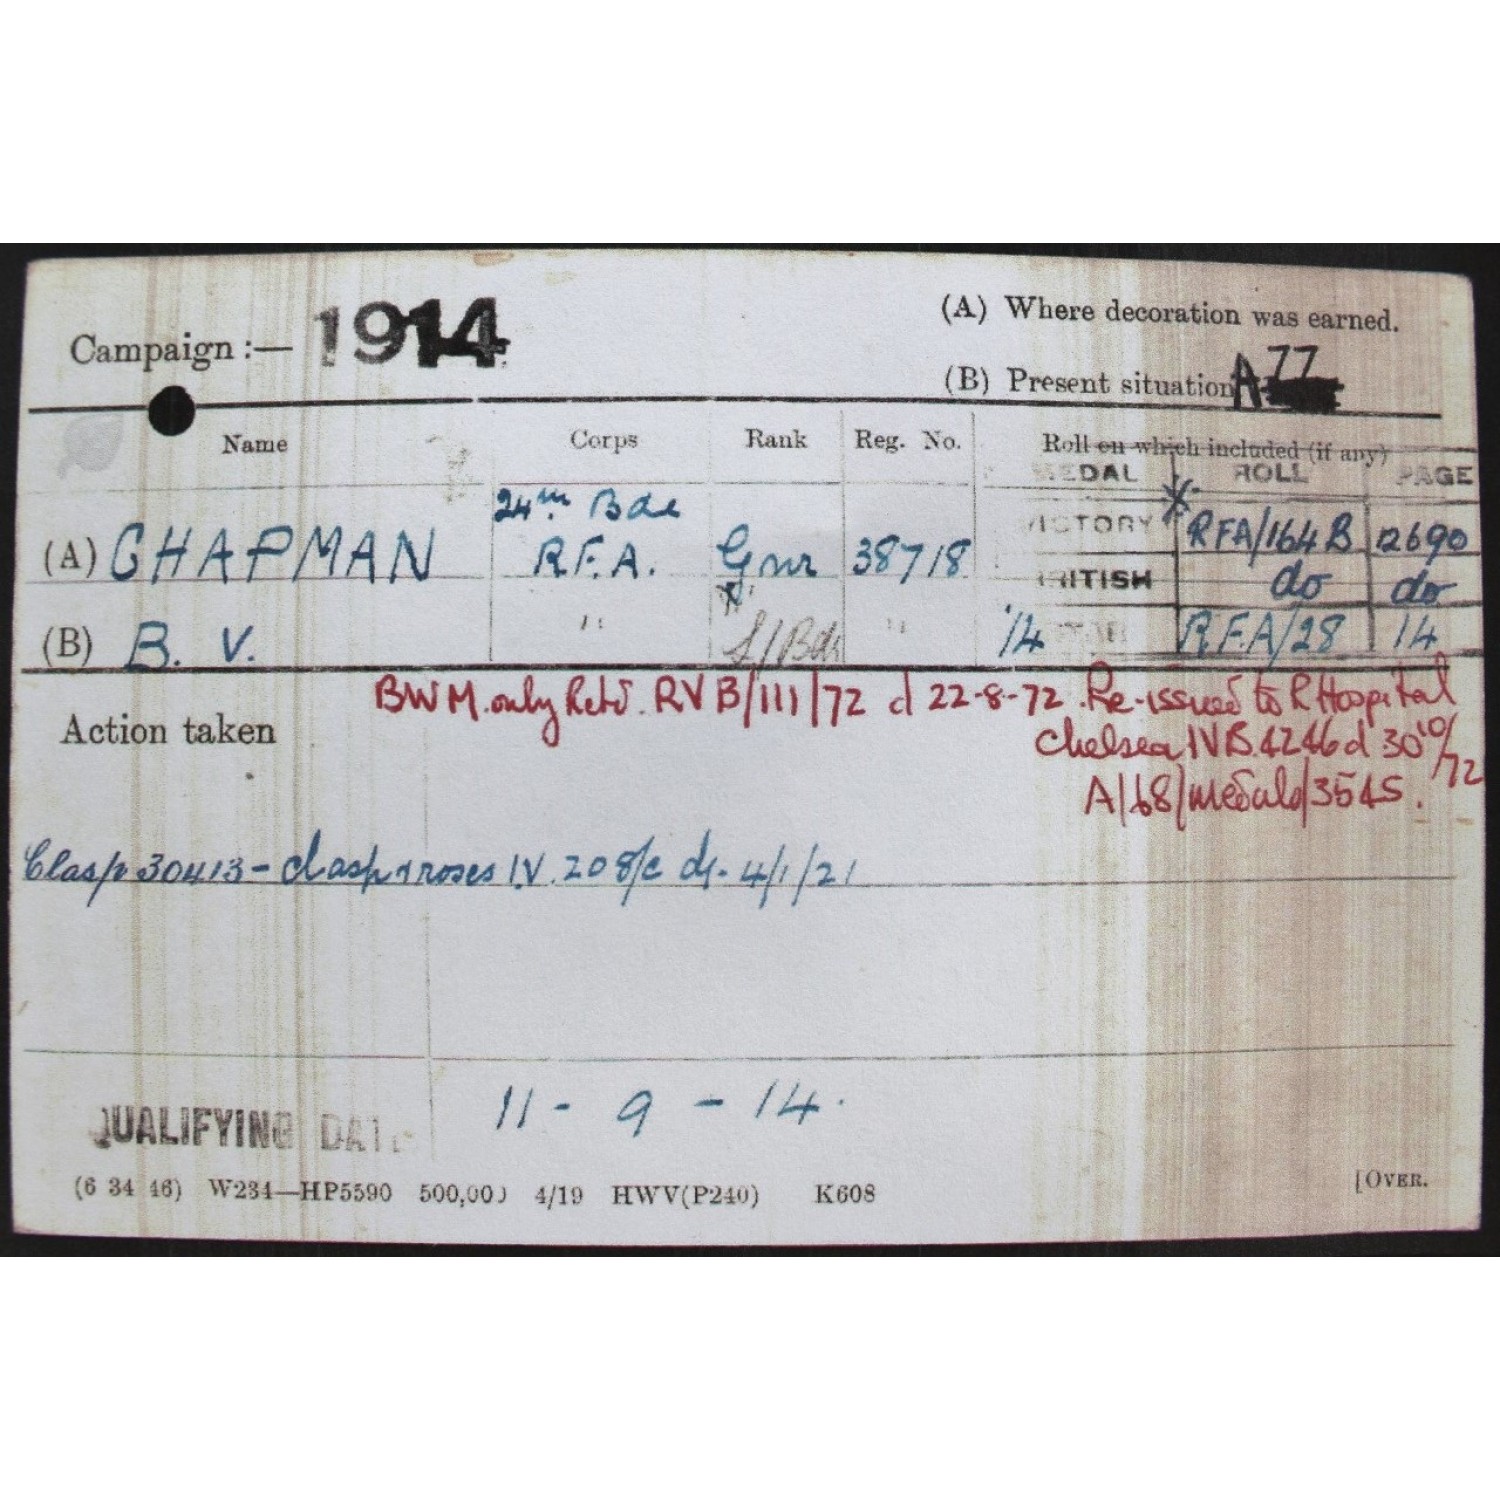 Campaign :— 1914
(A) Where decoration was earned.
(B) Present situation A 77
Name Corps Rank Reg. No. Roll on which included (if any)
MEDAL ROLL PAGE
24th Bde
(A) CHAPMAN R.F.A. Gnr 38718 VICTORY RFA/164B 12690
BRITISH do do
(B) B. V. " " '14 STAR R.F.A/28 14
BWM only Retd. RVB/111/72 d 22-8-72. Re-issued to R Hospital
Action taken
Chelsea IVB.4246d 30/10/72
A/68/medals/3545.
Clasp 30413 - clasp & roses I.V. 208/c d/- 4/1/21
QUALIFYING DATE 11 - 9 - 14.
(6 34 46) W234—HP5590 500,000 4/19 HWV(P240) K608 [OVER.